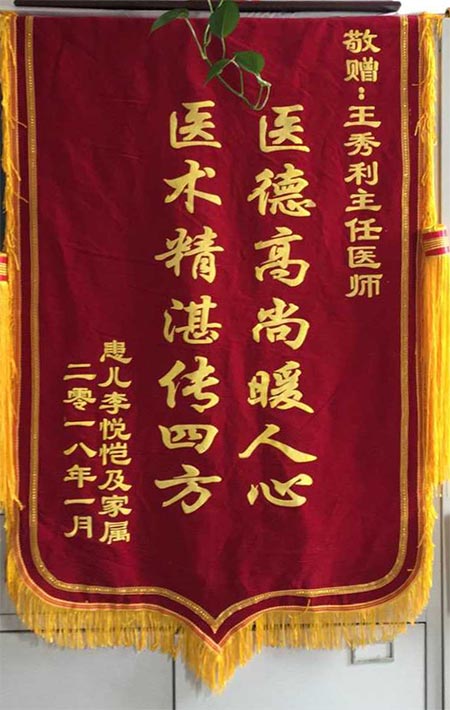 敬赠：王秀利主任医师
医德高尚暖人心
医术精湛传四方
患儿李悦恺及家属
二零一八年一月